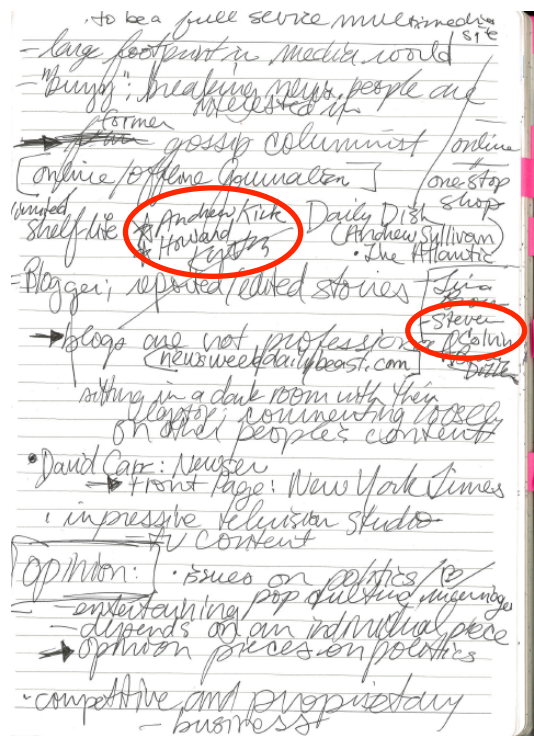 . to be a full service multimedia site
- large footprint in media world
- "Buzzy"; breaking news people are
interested in
former
gossip columnist
online
[online/offline journalism]
one-stop
shop
limited
shelf-life
Andrew Kirk
Howard Kurtz
Daily Dish
(Andrew Sullivan)
• The Atlantic
- Blogger; reported/edited stories
Tina
Brown
- Steven
Colvin
blogs are not professional
[newsweekdailybeast.com]
sitting in a dark room with their
laptop; commenting loosely
on other people's content
• David Carr: Newser
Front Page: New York Times
impressive television studio
TV content
opinion:
• issues on politics/
pop culture
- entertaining
- depends on an individual piece
opinion pieces on politics
- competitive and propriotary
- business